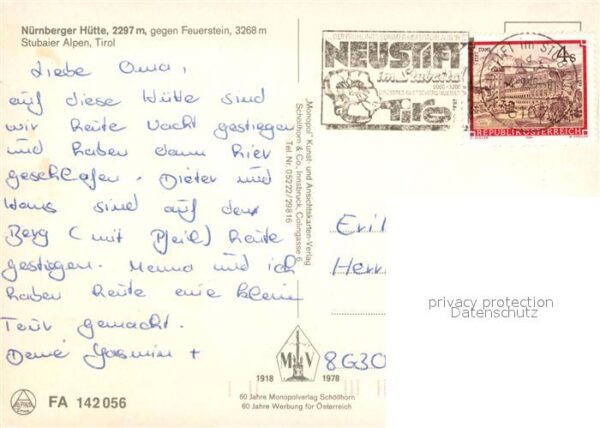 Nürnberger Hütte, 2297 m, gegen Feuerstein, 3268 m
Stubaier Alpen, Tirol
Liebe Oma,
auf diese Hütte sind
wir heute Nacht gestiegen
und haben dann hier
geschlafen. Dieter und
Hans sind auf den
Berg (mit Pfeil) heute
gestiegen. Mama und ich
haben heute eine kleine
Tour gemacht.
Deine Yasmin +
„Monopol" Kunst- und Ansichtskarten-Verlag
Schöllhorn & Co., Innsbruck, Colingasse 6,
Tel. Nr. 05222/29816
NEUSTIFT
im Stubaital
Tirol
4 S
STAMS
REPUBLIK ÖSTERREICH
Eri
Herr
8630
privacy protection
Datenschutz
M V
1918 1978
60 Jahre Monopolverlag Schöllhorn
60 Jahre Werbung für Österreich
ALPINA
FA 142 056